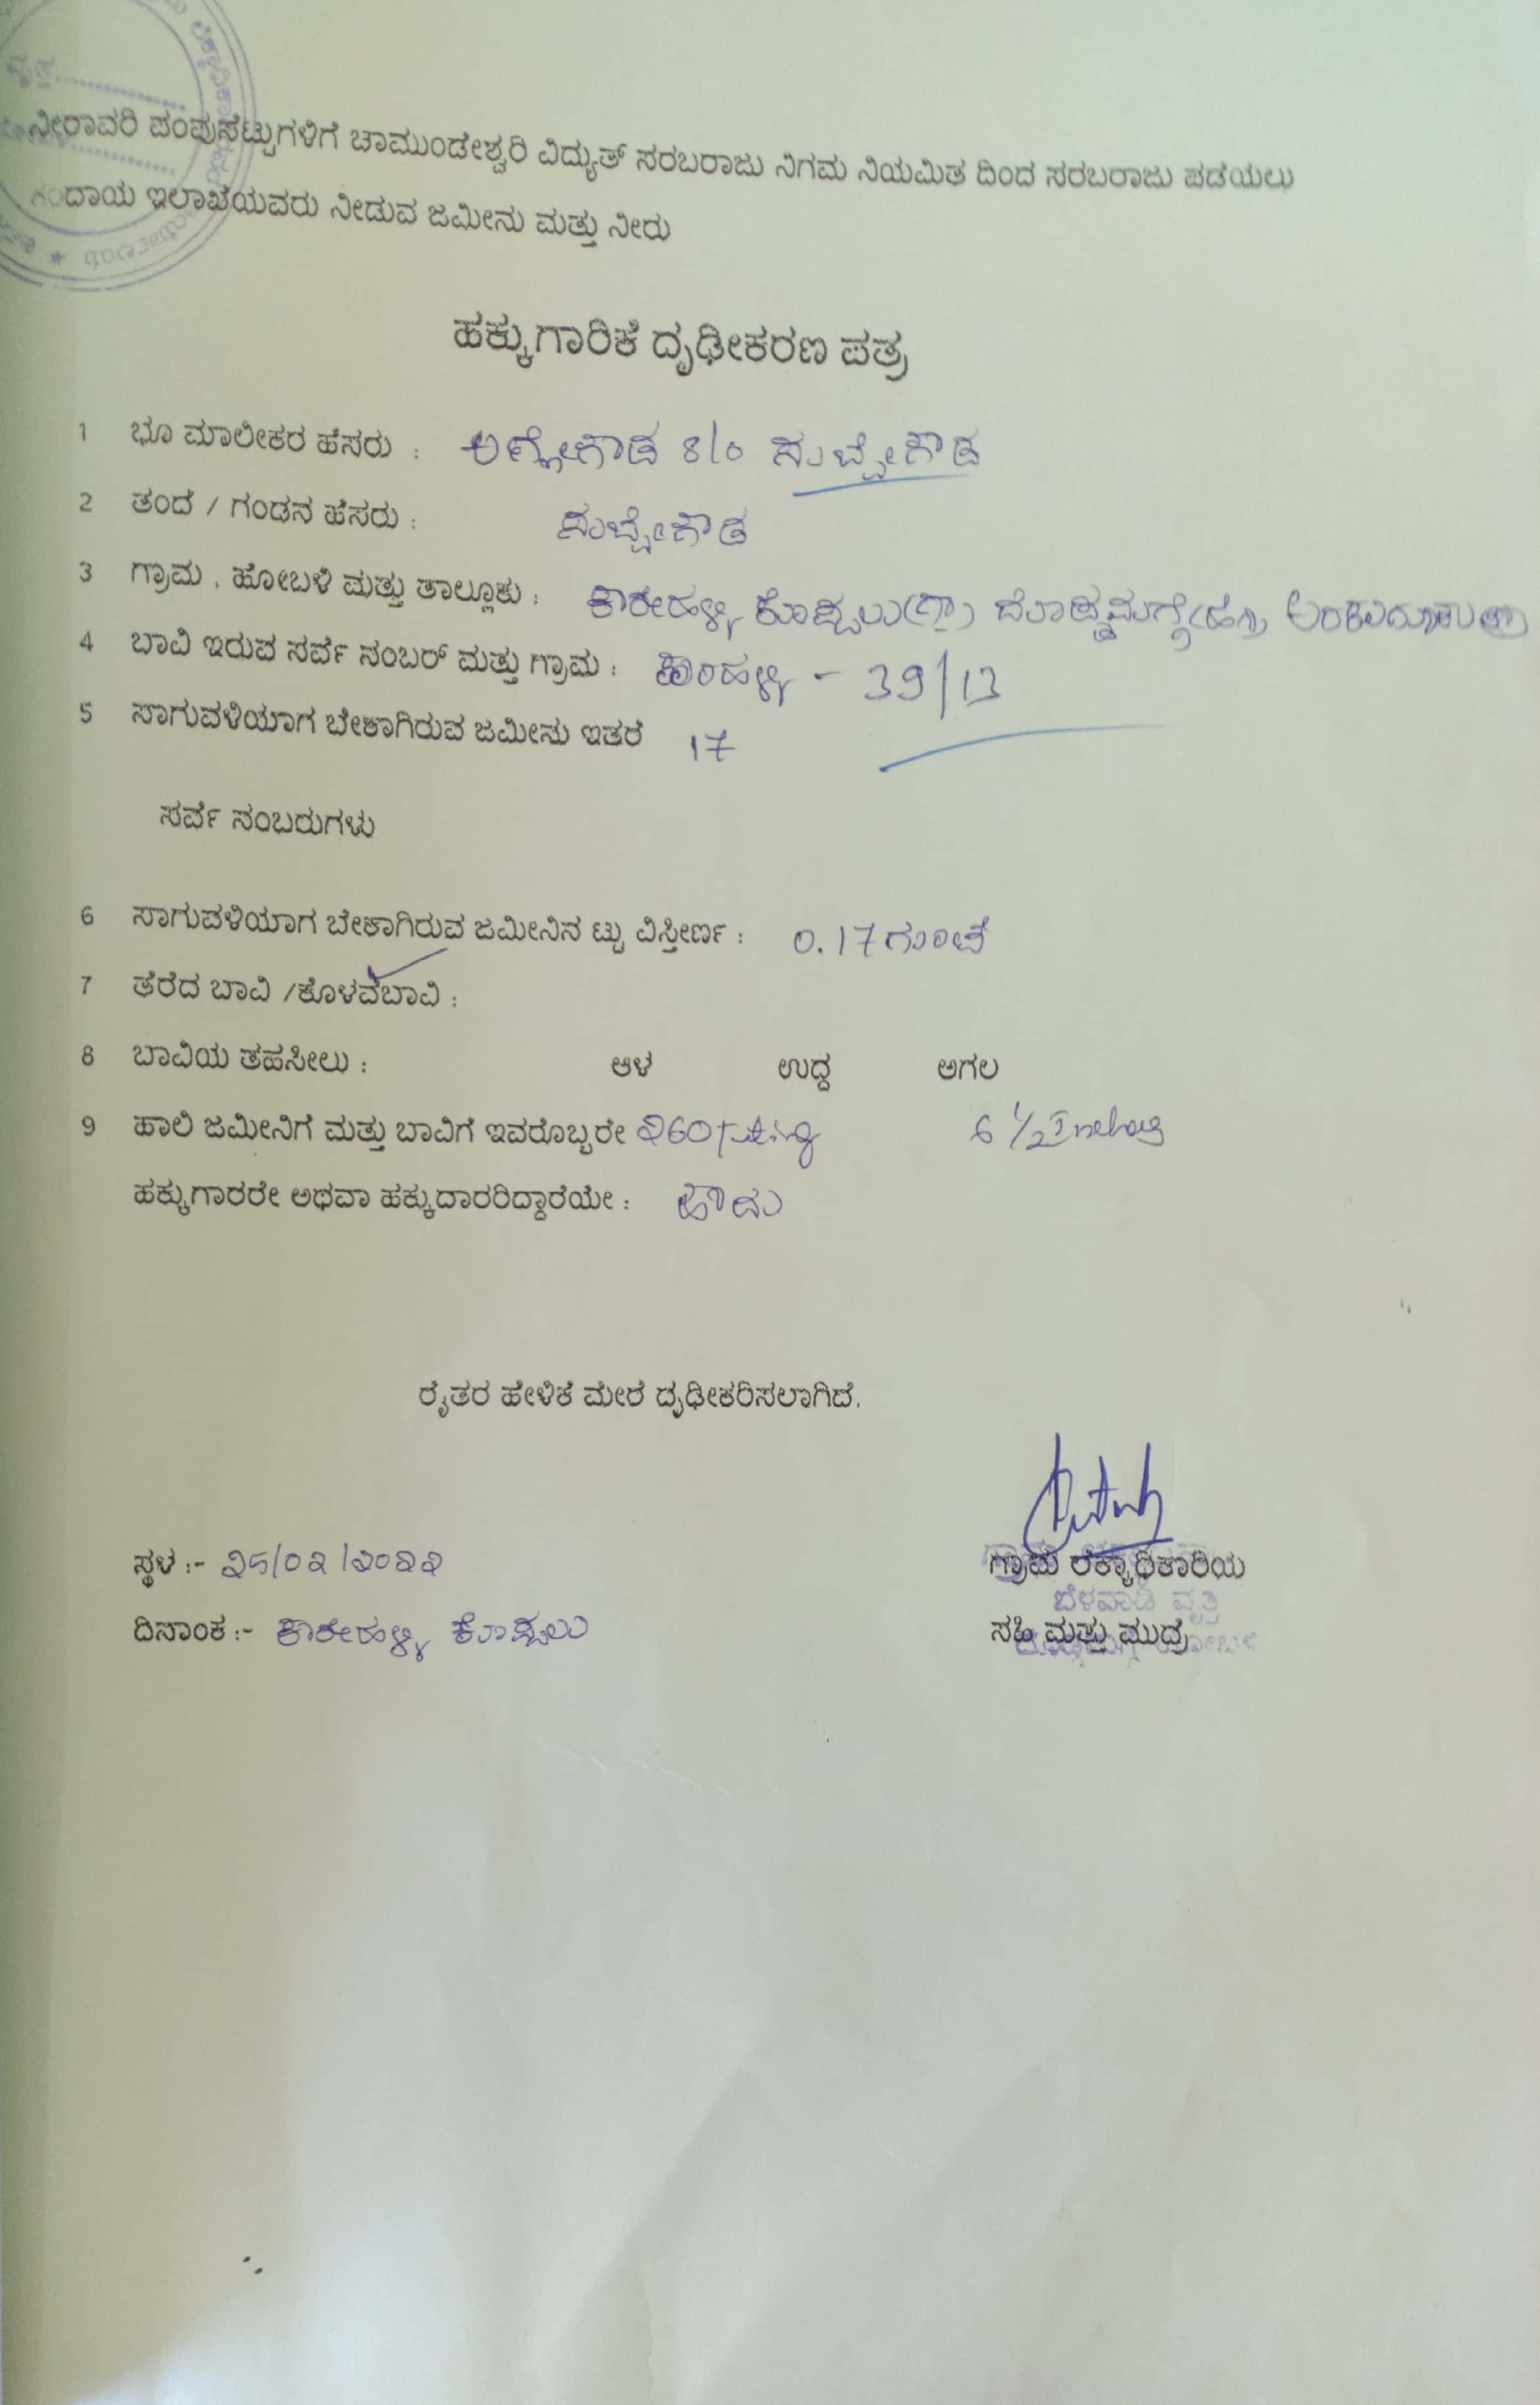 ನೀರಾವರಿ ಪಂಪುಸೆಟ್ಟುಗಳಿಗೆ ಚಾಮುಂಡೇಶ್ವರಿ ವಿದ್ಯುತ್ ಸರಬರಾಜು ನಿಗಮ ನಿಯಮಿತ ದಿಂದ ಸರಬರಾಜು ಪಡೆಯಲು
ಕಂದಾಯ ಇಲಾಖೆಯವರು ನೀಡುವ ಜಮೀನು ಮತ್ತು ನೀರು
ಹಕ್ಕುಗಾರಿಕೆ ದೃಢೀಕರಣ ಪತ್ರ
1 ಭೂ ಮಾಲೀಕರ ಹೆಸರು : ಅಣ್ಣೇಗೌಡ S/o ಸುಬ್ಬೇಗೌಡ
2 ತಂದೆ / ಗಂಡನ ಹೆಸರು : ಸುಬ್ಬೇಗೌಡ
3 ಗ್ರಾಮ , ಹೋಬಳಿ ಮತ್ತು ತಾಲ್ಲೂಕು : ಕಾರೇಹಳ್ಳಿ ಕೊಪ್ಪಲು(ಗ್ರಾ)
4 ಬಾವಿ ಇರುವ ಸರ್ವೆ ನಂಬರ್ ಮತ್ತು ಗ್ರಾಮ : - 39/13
5 ಸಾಗುವಳಿಯಾಗ ಬೇಕಾಗಿರುವ ಜಮೀನು ಇತರೆ 17
ಸರ್ವೆ ನಂಬರುಗಳು
6 ಸಾಗುವಳಿಯಾಗ ಬೇಕಾಗಿರುವ ಜಮೀನಿನ ಟ್ಟು ವಿಸ್ತೀರ್ಣ : 0.17 ಗುಂಟೆ
7 ತೆರೆದ ಬಾವಿ /ಕೊಳವೆಬಾವಿ :
8 ಬಾವಿಯ ತಹಸೀಲು : ಆಳ ಉದ್ದ ಅಗಲ
9 ಹಾಲಿ ಜಮೀನಿಗೆ ಮತ್ತು ಬಾವಿಗೆ ಇವರೊಬ್ಬರೇ 6 1/2
ಹಕ್ಕುಗಾರರೇ ಅಥವಾ ಹಕ್ಕುದಾರರಿದ್ದಾರೆಯೇ : ಹೌದು
ರೈತರ ಹೇಳಿಕೆ ಮೇರೆ ದೃಢೀಕರಿಸಲಾಗಿದೆ.
ಸ್ಥಳ :- ೨5/0೨/೨0೨೨
ಗ್ರಾಮ ಲೆಕ್ಕಾಧಿಕಾರಿಯ
ಬೆಳವಾಡಿ ವೃತ್ತ
ದಿನಾಂಕ :- ಕಾರೇಹಳ್ಳಿ ಕೊಪ್ಪಲು
ಸಹಿ ಮತ್ತು ಮುದ್ರೆ